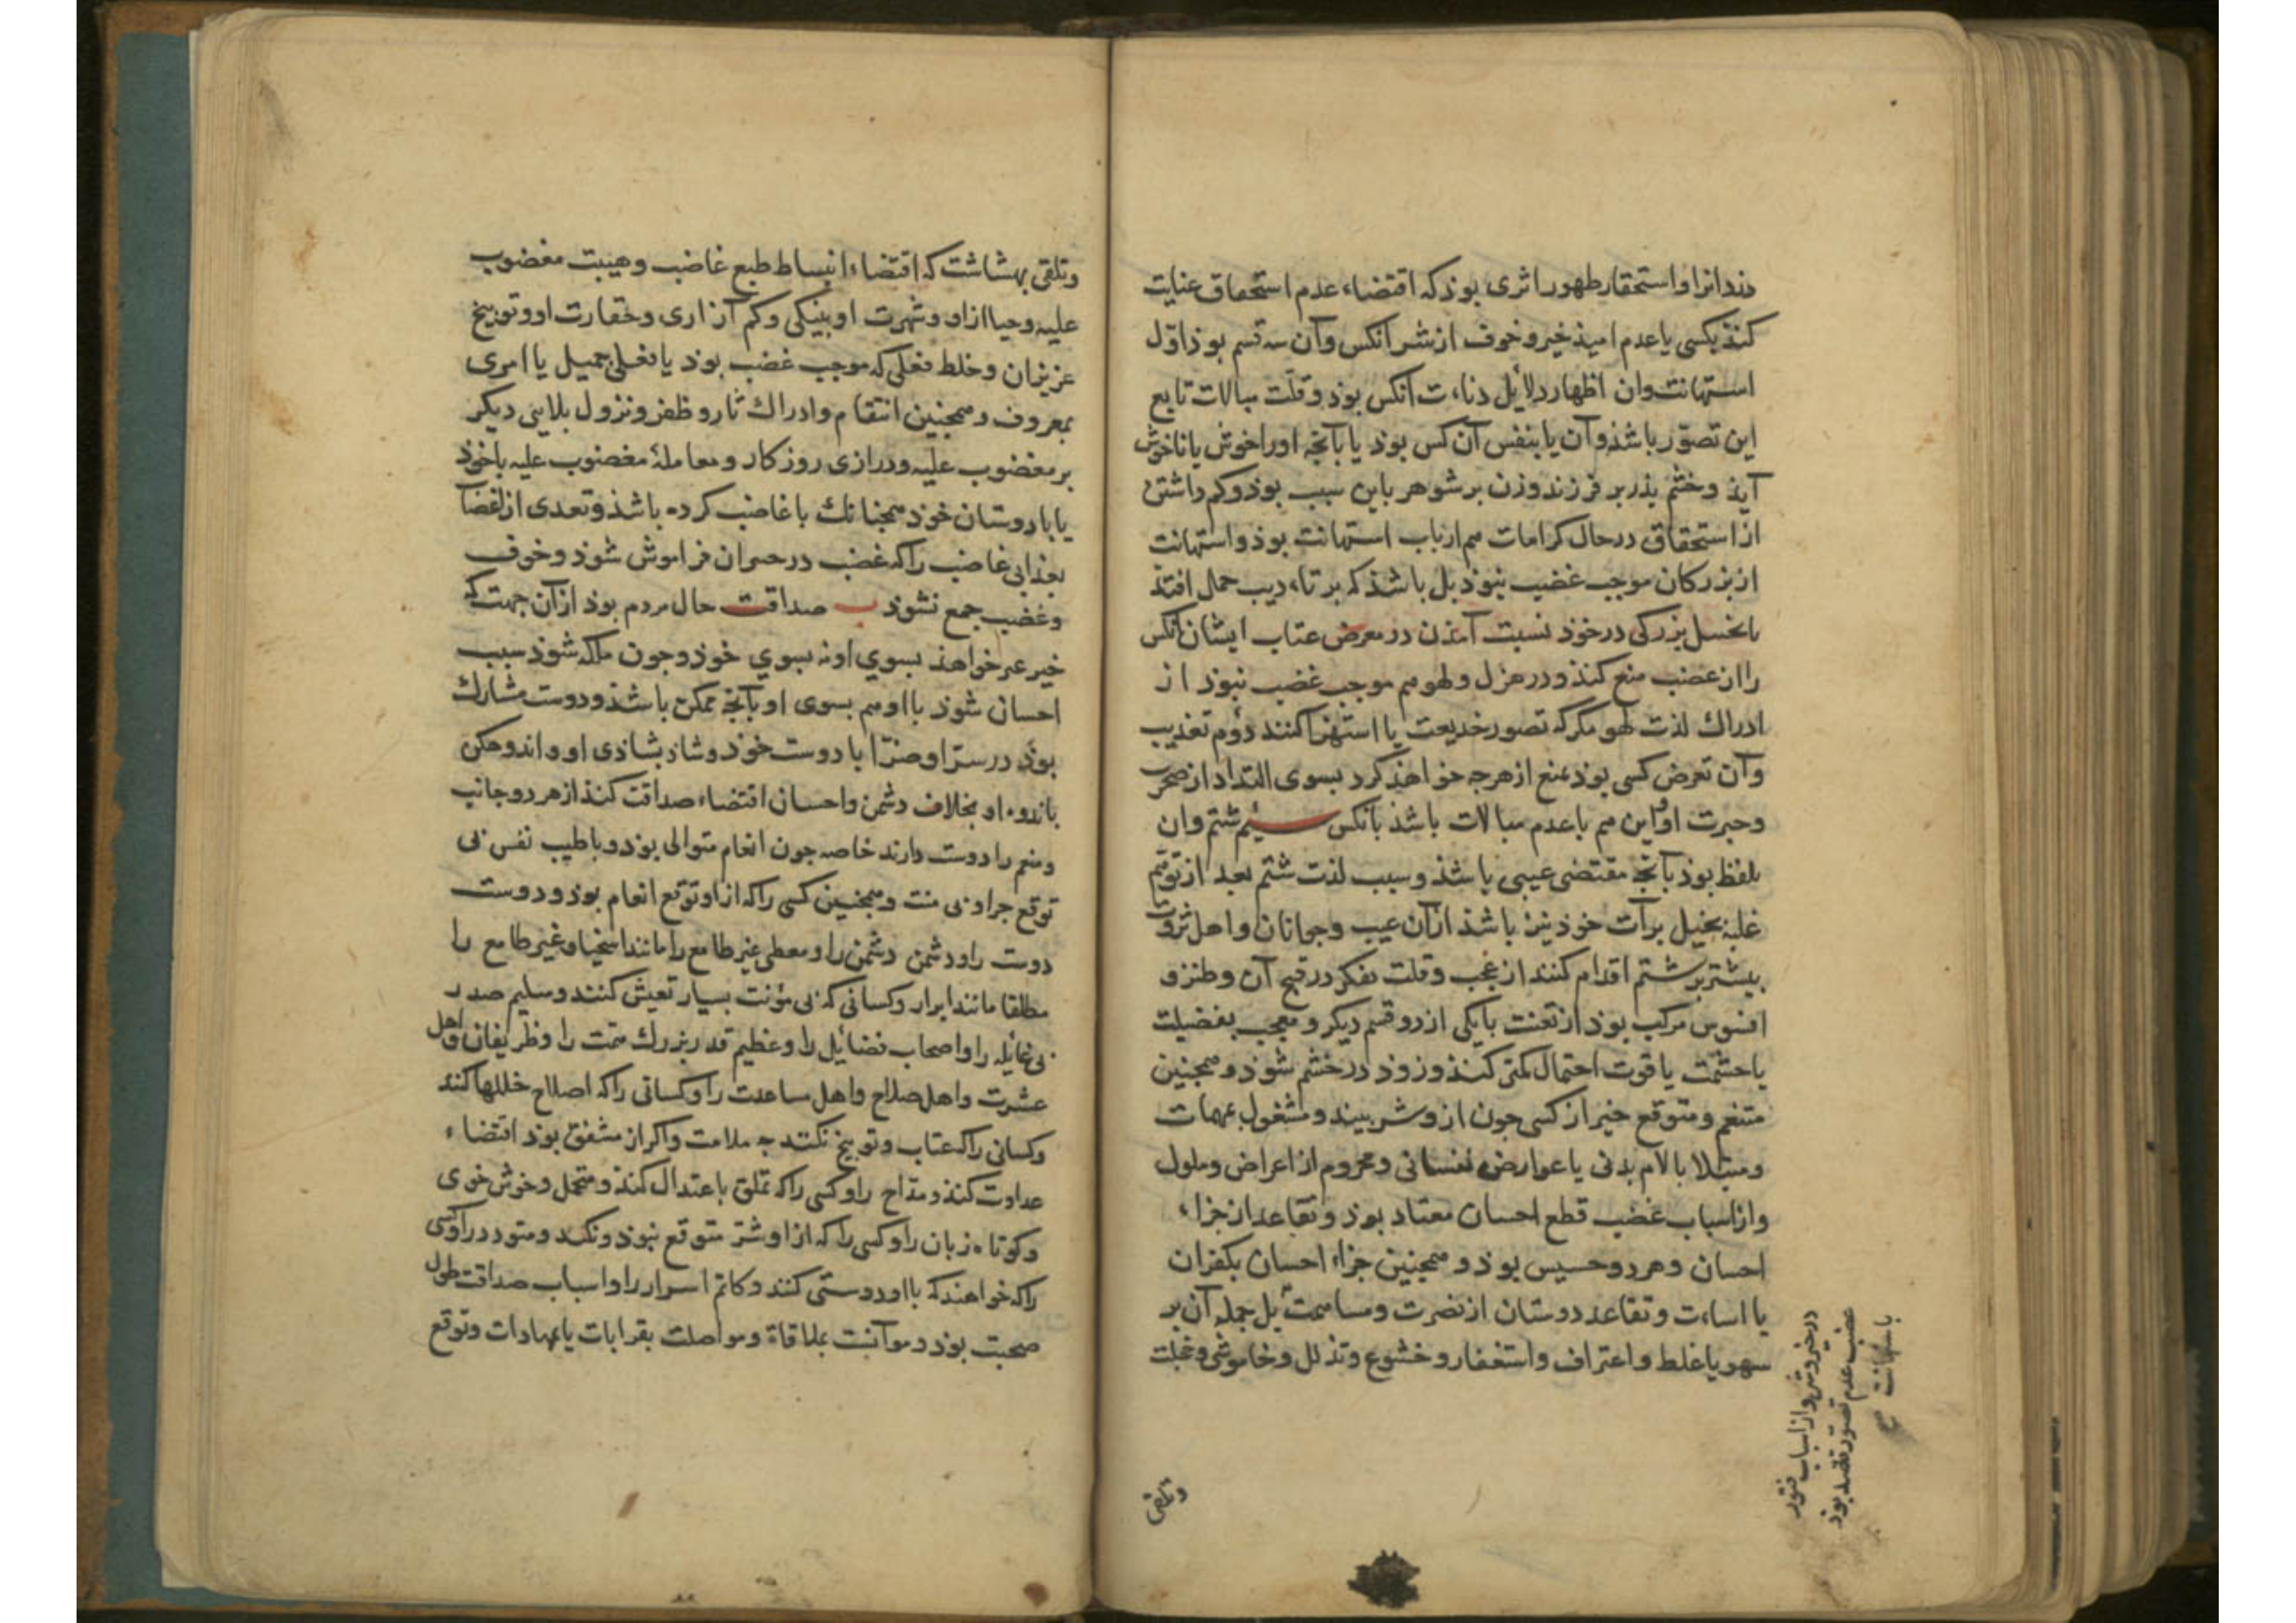 دندانرا واستحقار ظهور اثری بوذ که اقتضاء عدم استحقاق عنایت
کنذ بکسی یا عدم امیذ خیر و خوف از شر آنکس وآن سه قسم بوذ اوّل
استهانت وان اظهار دلائل دناءت آنکس بوذ وقلّت مبالات تابع
این تصوّر باشذ وآن یا بنفس آن کس بوذ یا بآنچه اورا خوش یا ناخوش
آیذ وخشم پذر بر فرزند وزن بر شوهر باین سبب بوذ وکم داشتن
از استحقاق درحال کرامات هم از باب استهانت بوذ واستهانت
از بزرکان موجب غضب نبوذ بل باشذ که بر تاءدیب حمل افتد
بزرکی درخوذ نسبت آمذن در معرض عتاب ایشان آنکس
را از غضب منع کنذ ودر هزل ولهو هم موجب غضب نبوذ از
ادراك لذت لهو مکر که تصور خدیعت یا استهزا کنند دوم تعذیب
وآن تعرض کسی بوذ بمنع از هرجه خواهذ کرد بسوی التذاذ از ضجر
وحیرت او واین هم با عدم مبالات باشذ بآنکس سیم شتم وان
بلفظ بوذ بآنچه مقتضی عیبی باشذ وسبب لذت شتم بعد از توهّم
غلبه تخیل برآت خوذ نیز باشذ ازآن عیب وجوانان واهل ثروت
بیشتر بر شتم اقدام کنند از عجب وقلت تفکر در قبح آن وطنز و
افسوس مرکب بوذ از تعنت با یکی از دو قسم دیکر ومعجب بفضیلت
یا حشمت یا قوت احتمال کمتر کنذ وزوذ درخشم شوذ وهمجنین
متنعم ومتوقع خیر از کسی جون ازو شر بیند ومشغول بمهمات
ومبتلا بآلام بدنی یا عوارض نفسانی ومحروم از اعراض وملول
واز اسباب غضب قطع احسان معتاد بوذ وتقاعد از جزاء
احسان وهر دو خسیس بوذ وهمجنین جزاء احسان بکفران
یا اساءت وتقاعد دوستان از نصرت ومسامحت بل حمله آن بر
سهو یا غلط واعتراف واستغفار وخشوع وتذلل وخاموشی وخجلت
در خیر وشر واز اسباب فتور
غضب عدم تصور قصد بوذ
باستهانت
وتلقی
وتلقی بهشاشت که اقتضاء انبساط طبع غاضب وهیبت مغضوب
علیه وحیا ازاو وشهرت او بنیکی وکم آزاری وحقارت او وتوبیخ
عزیزان وخلط فعلی که موجب غضب بوذ یا فعلی جمیل یا امری
بمعروف وهمجنین انتقام وادراك ثار وظفر ونزول بلایی دیکر
بر مغضوب علیه ودرازی روزکار ومعاملهٔ مغضوب علیه باخوذ
یا با دوستان خوذ همجنانك با غاضب کرده باشذ وتعدی از اغضا
بعذابی غاضب را که غضب در خسران فراموش شوذ وخوف
وغضب جمع نشوذ ب صداقت حال مردم بوذ ازآن جهت که
خیر غیر خواهذ بسوی او نه بسوی خوذ وجون ملکه شوذ سبب
احسان شوذ با او هم بسوی او بآنچه ممکن باشذ ودوست مشارك
بوذ در سرّا وضرّا با دوست خوذ وشاذ بشاذی او واندوهکن
باندوه او بخلاف دشمن واحسان اقتضاء صداقت کنذ از هر دو جانب
ومنعم را دوست دارند خاصه جون انعام متوالی بوذ وبا طیب نفس بی
توقع جزا وبی منت وهمجنین کسی را که ازاو توقع انعام بوذ ودوست
دوست را ودشمن دشمن را ومعطی غیر طامع را مانند اسخیا وغیر طامع را
مطلقا مانند ابرار وکسانی که بی مؤنت بسیار تعیش کنند وسلیم صدر
بی غائله را واصحاب فضائل را وعظیم قدر بزرك همت را وظریفان واهل
عشرت واهل صلاح واهل مساعدت را وکسانی را که اصلاح خللها کنند
وکسانی را که عتاب وتوبیخ نکنند جه ملامت واکر از مشفق بوذ اقتضاء
عداوت کنذ ومداح را وکسی را که تملق باعتدال کنذ ومتجمل وخوش خوی
وکوتاه زبان را وکسی را که ازاو شرّ متوقع نبوذ ونکند ومتودد را وکسی
را که خواهند که با او دوستی کنند وکاتم اسرار را واسباب صداقت طول
صحبت بوذ وموآنست بملاقاة ومواصلت بقرابات یا بمهادات وتوقع